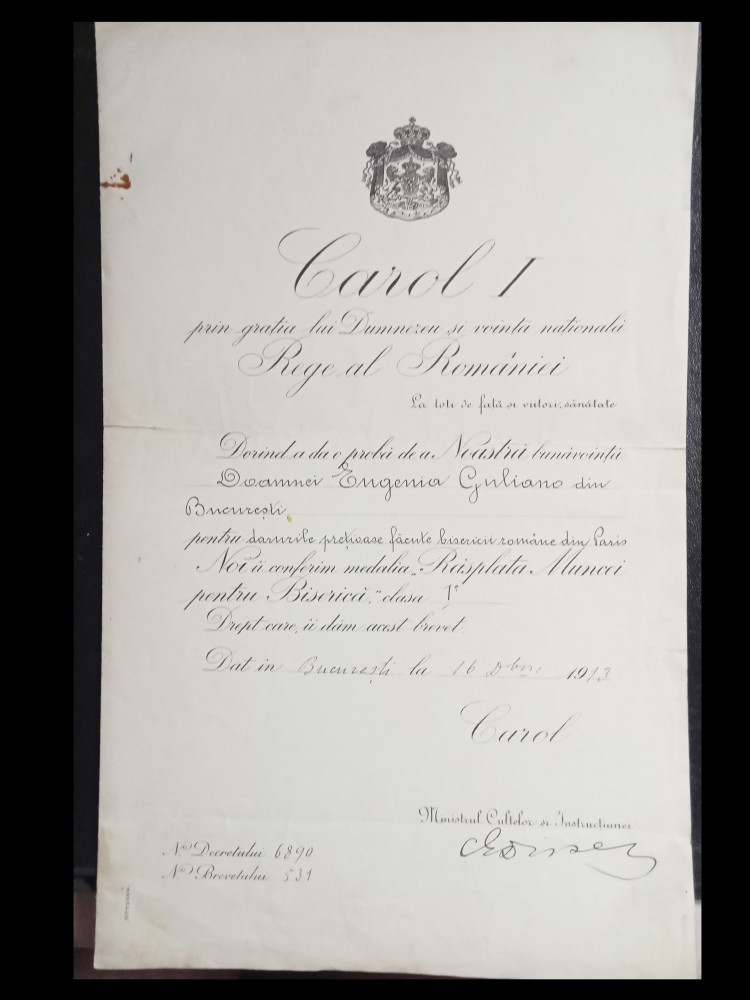 Carol I
prin grația lui Dumnezeu și voința națională
Rege al României
La toți de față și viitori, sănătate
Dorind a da o probă de a Noastră bunăvoință
Doamnei Eugenia Guliano din
București
pentru darurile prețioase făcute bisericii române din Paris
Noi îi conferim medalia „Răsplata Muncei
pentru Biserică,” clasa I
Drept care, îi dăm acest brevet.
Dat in București la 16 Dbrie 1913
Carol
Ministrul Cultelor și Instrucțiunei
No. Decretului 6890
No. Brevetului 531